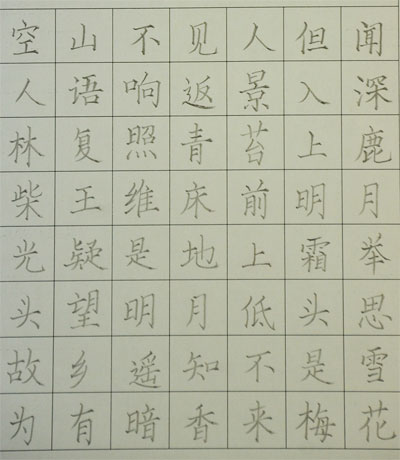 空山不见人但闻
人语响返景入深
林复照青苔上鹿
柴王维床前明月
光疑是地上霜举
头望明月低头思
故乡遥知不是雪
为有暗香来梅花